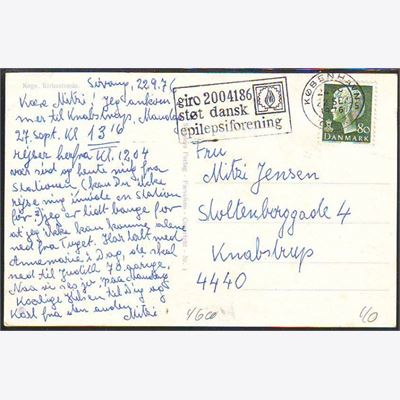 Køge, Kirkestræde.
Sorany, 22.9.76
Kære Mitri! Jeg ankom
mer til Knabstrup, Mandag
27. sept. Kl 13 16
rejser herfra Kl. 12,04
vær sød og hente mig fra
Stationen (kan Du ikke
rejse mig imøde en Station
før?) Jeg er lidt bange for
at jeg ikke kan komme alene
ned fra Toget. Har talt med
Annemarie i Dag, de skal
ned til Judith 70 aarige.
Naa vi ses jo, paa Mandag
Kærlige Hilsen til Dig og
Karl fra den anden Mitri
giro 2004186
støt dansk
epilepsiforening
KØBENHAVN
80
DANMARK
Fru
Mitri Jensen
Stoltenberggade 4
Knabstrup
4440